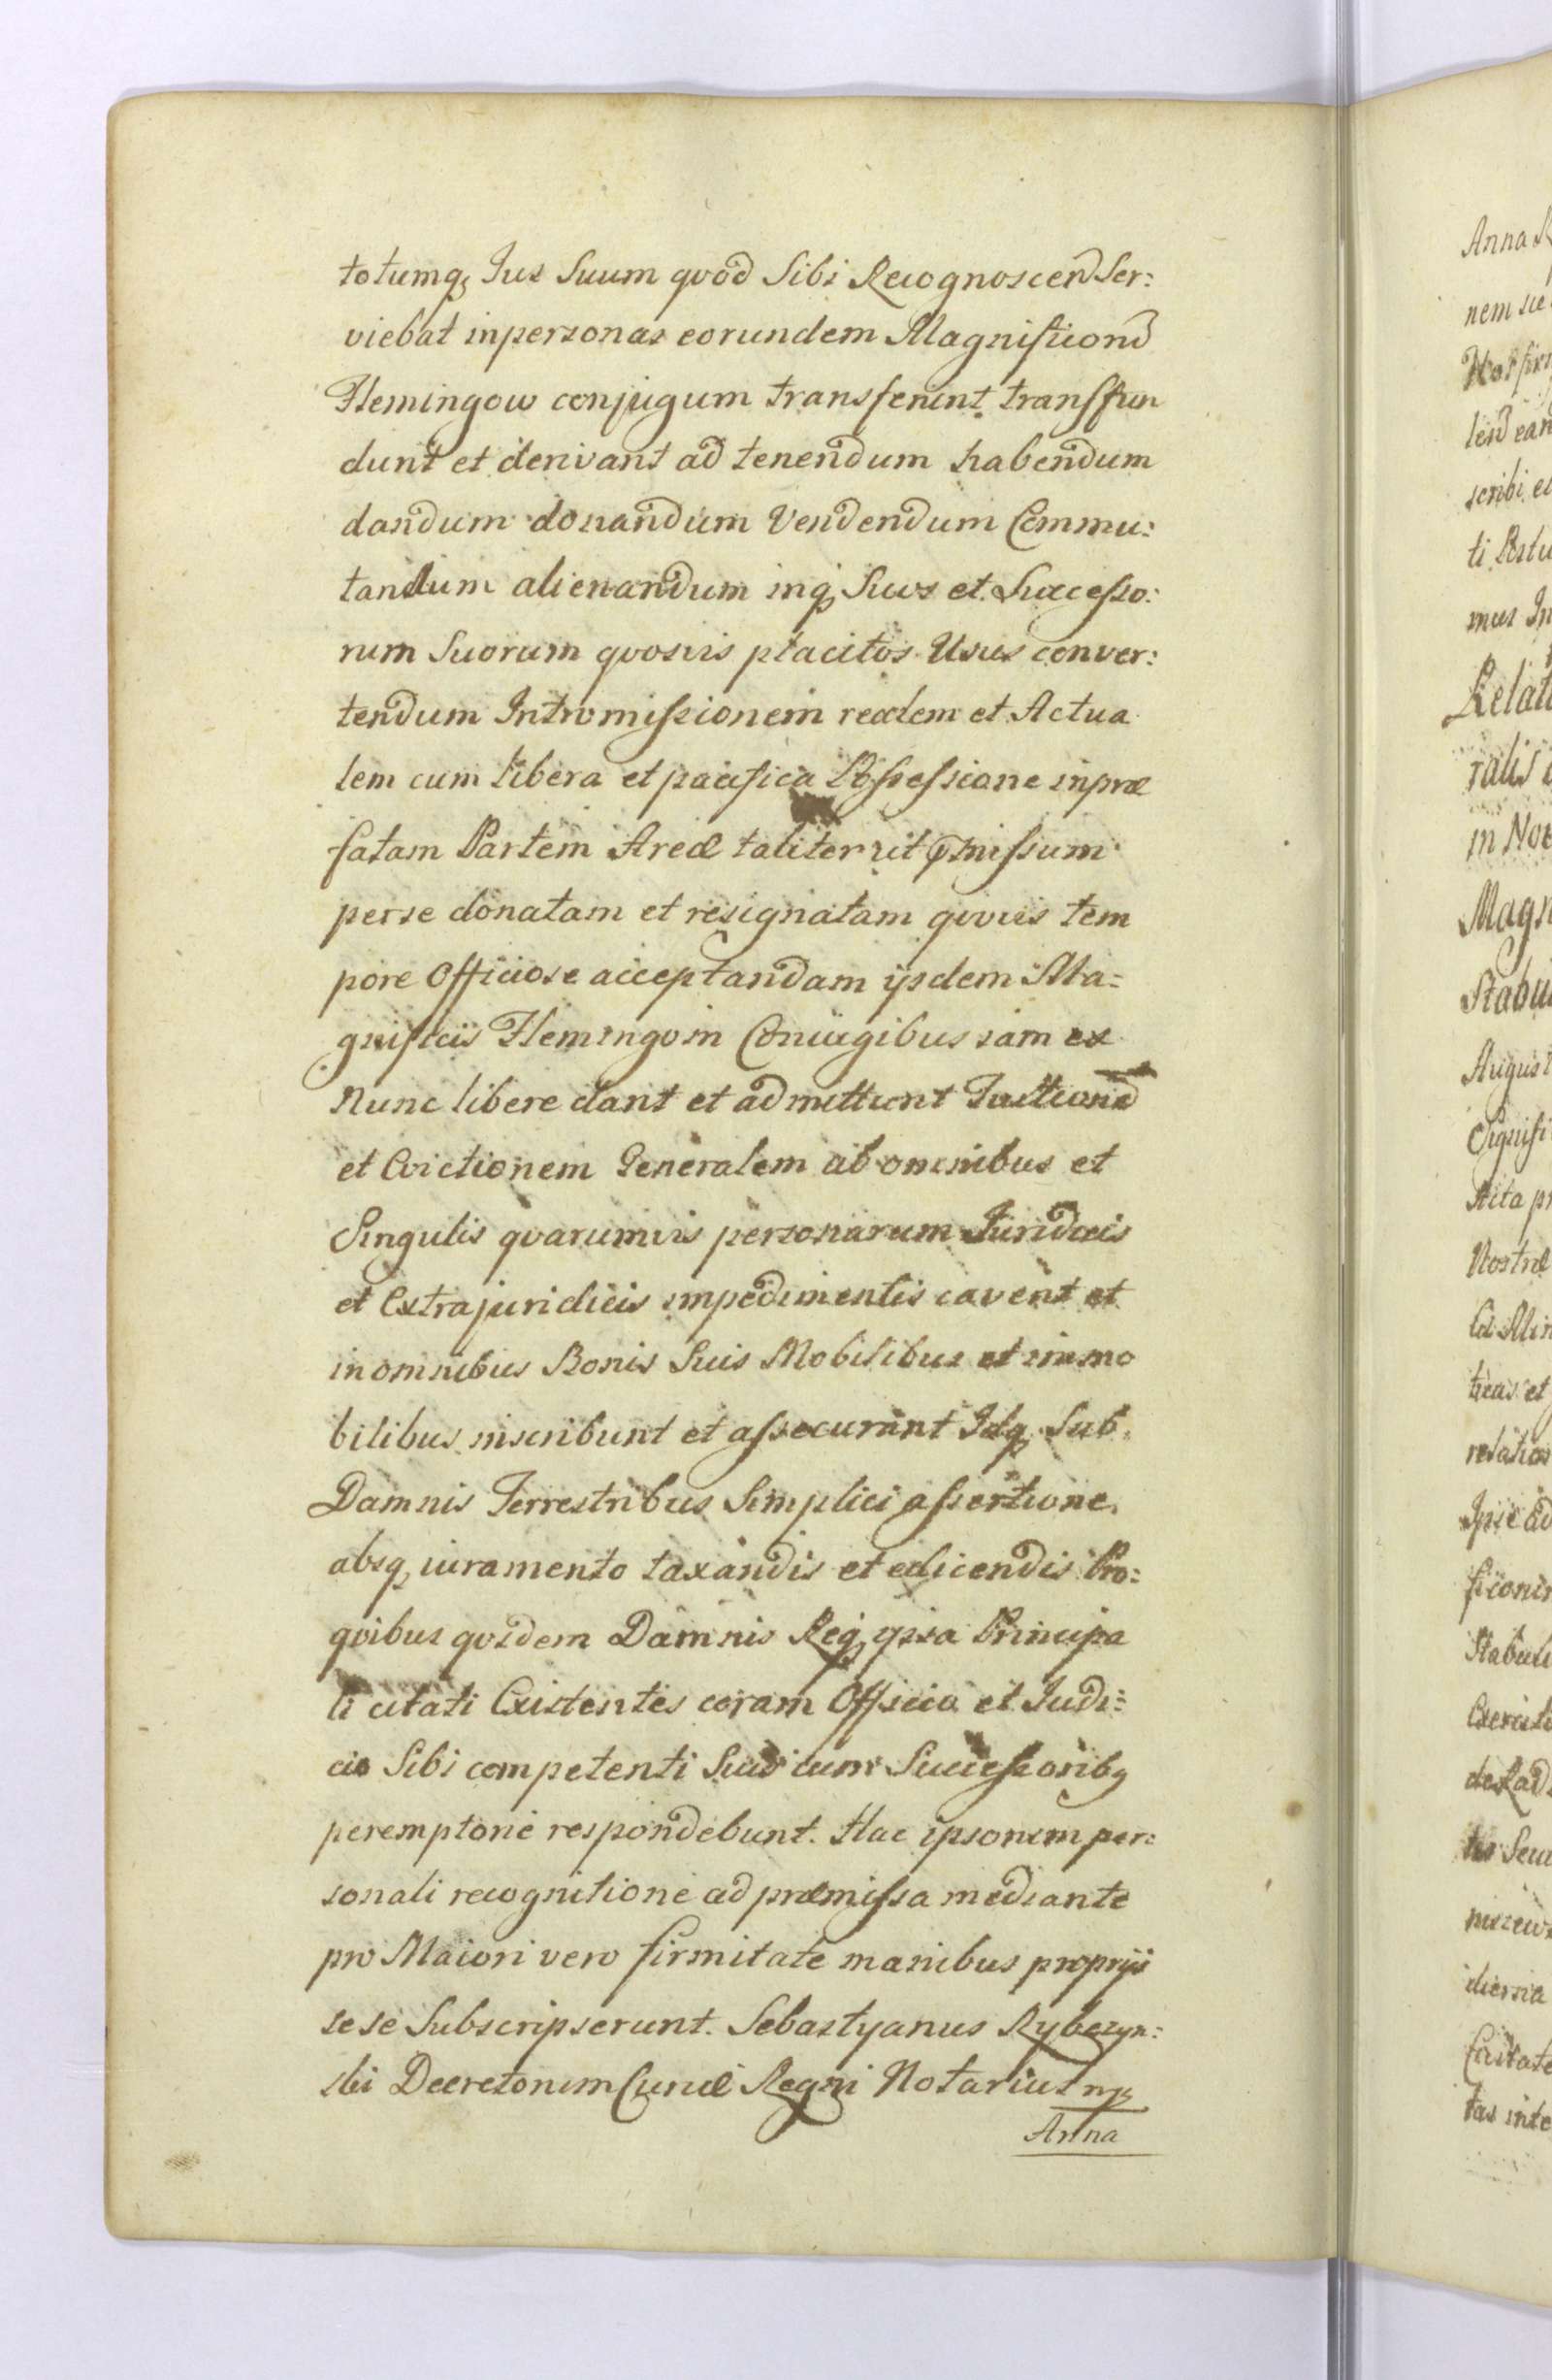 totumq, Jus Suum qvod Sibi Recognoscen Ser:
viebat in personas eorundem Magnificorū
Flemingow conjugum transferunt transffun
dunt et derivant ad tenendum habendum
dandum donandum Vendendum Commu:
tandum alienandum inq, Suos et Successo:
rum Suorum qvosvis placitos Usus conver:
tendum Intromissionem realem et Actua
lem cum libera et pacifica Possessione in præ
fatam Partem Areæ taliter ut pmissum
per se donatam et resignatam qvovis tem
pore Officiose acceptandam ijsdem Ma=
gnificis Flemingom Coniugibus iam ex
Nunc libere dant et admittunt
et Evictionem Generalem ab omnibus et
Singulis qvarumvis personarum Juridicis
et Extrajuridicis impedimentis cavent et
in omnibus Bonis Suis Mobilibus et immo
bilibus inscribunt et assecurant Idq, Sub
Damnis Terrestribus Simplici assertione
absq, iuramento taxandis et edicendis Pro:
qvibus qvidem Damnis Req, ipsa Principa
li citati Existentes coram Officio et Judi:
cio Sibi competenti Suis cum Successoribq
peremptorie respondebunt. Hac ipsorum per:
sonali recognitione ad præmissa mediante
pro Maiori vero firmitate manibus proprijs
sese Subscripserunt. Sebastyanus Rybczyn:
ski Decretorum Curiæ Regni Notarius mp
Anna
Anna
nem
scribi
mus
Relati
ralis
in
Magn
Stabul
August
Signifi
Acta
Nostræ
treas et
relation
Ipse ad
Stabuli